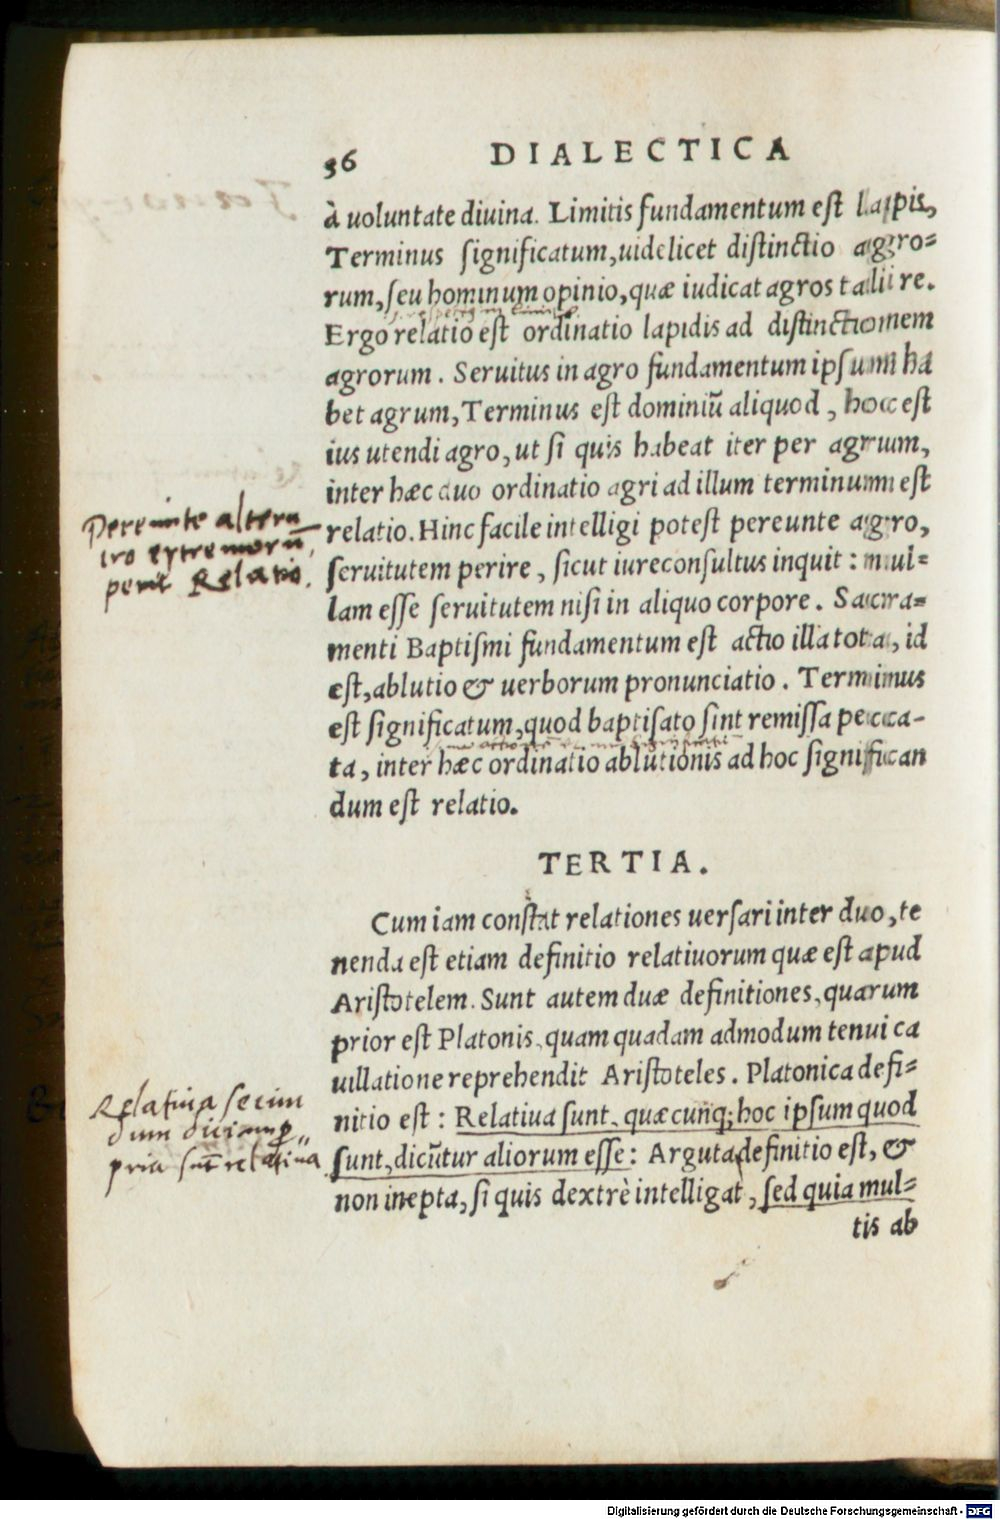 36 DIALECTICA
à uoluntate diuina. Limitis fundamentum est lapis,
Terminus significatum, uidelicet distinctio agro-
rum, seu hominum opinio, quæ iudicat agros tali re.
Ergo relatio est ordinatio lapidis ad distinctionem
agrorum. Seruitus in agro fundamentum ipsum ha
bet agrum, Terminus est dominiũ aliquod, hoc est
ius utendi agro, ut si quis habeat iter per agrum,
inter hæc duo ordinatio agri ad illum terminum est
relatio. Hinc facile intelligi potest pereunte agro,
seruitutem perire, sicut iureconsultus inquit: nul-
lam esse seruitutem nisi in aliquo corpore. Sacra-
menti Baptismi fundamentum est actio illa tota, id
est, ablutio & uerborum pronunciatio. Terminus
est significatum, quod baptisato sint remissa pecca-
ta, inter hæc ordinatio ablutionis ad hoc significan
dum est relatio.
Pereunte alteru
tro extremorũ,
perit Relatio.
TERTIA.
Cum iam constat relationes uersari inter duo, te
nenda est etiam definitio relatiuorum quæ est apud
Aristotelem. Sunt autem duæ definitiones, quarum
prior est Platonis, quam quadam admodum tenui ca
uillatione reprehendit Aristoteles. Platonica defi-
nitio est: Relatiua sunt, quæcunq; hoc ipsum quod
sunt, dicũtur aliorum esse: Arguta definitio est, &
non inepta, si quis dextrè intelligat, sed quia mul-
tis ab
Relatiua secun
dum dici imp
pria sũt relatiua
Digitalisierung gefördert durch die Deutsche Forschungsgemeinschaft - DFG